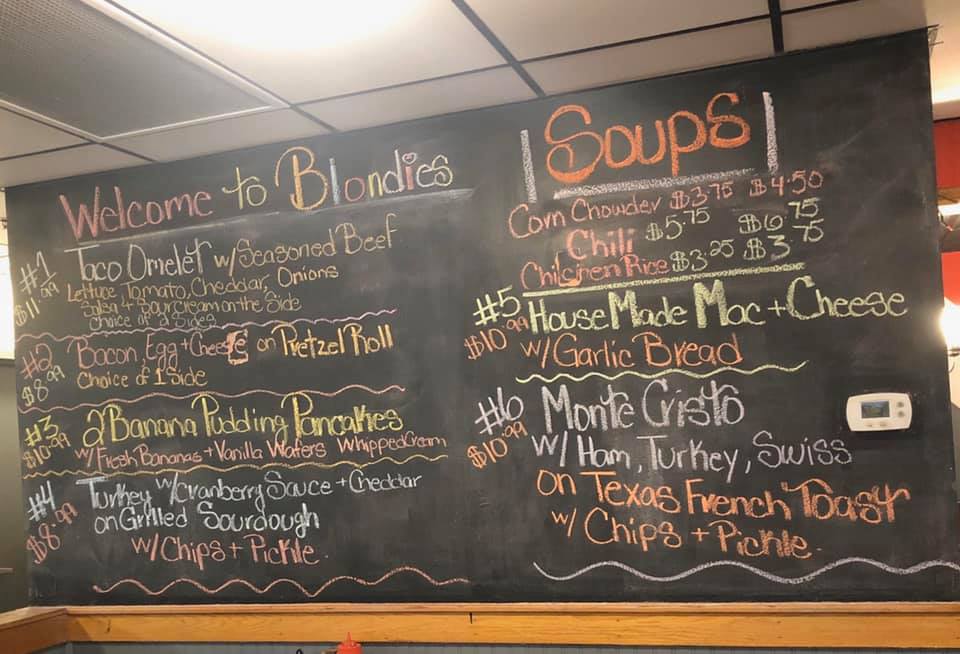 Welcome to Blondies
#1 Taco Omelet w/Seasoned Beef
$11.99 Lettuce, Tomato, Cheddar, Onions
Salsa + Sour Cream on the Side
Choice of 2 Sides
#2 Bacon, Egg + Cheese on Pretzel Roll
$8.99 Choice of 1 Side
#3 2 Banana Pudding Pancakes
$10.99 w/Fresh Bananas + Vanilla Wafers Whipped Cream
#4 Turkey w/Cranberry Sauce + Cheddar
$8.99 on Grilled Sourdough
w/Chips + Pickle
Soups
Corn Chowder $3.75 $4.50
Chili $5.75 $6.75
Chicken Rice $3.25 $3.75
#5 House Made Mac + Cheese
$10.99 w/Garlic Bread
#6 Monte Cristo
$10.99 w/Ham, Turkey, Swiss
on Texas French Toast
w/ Chips + Pickle.